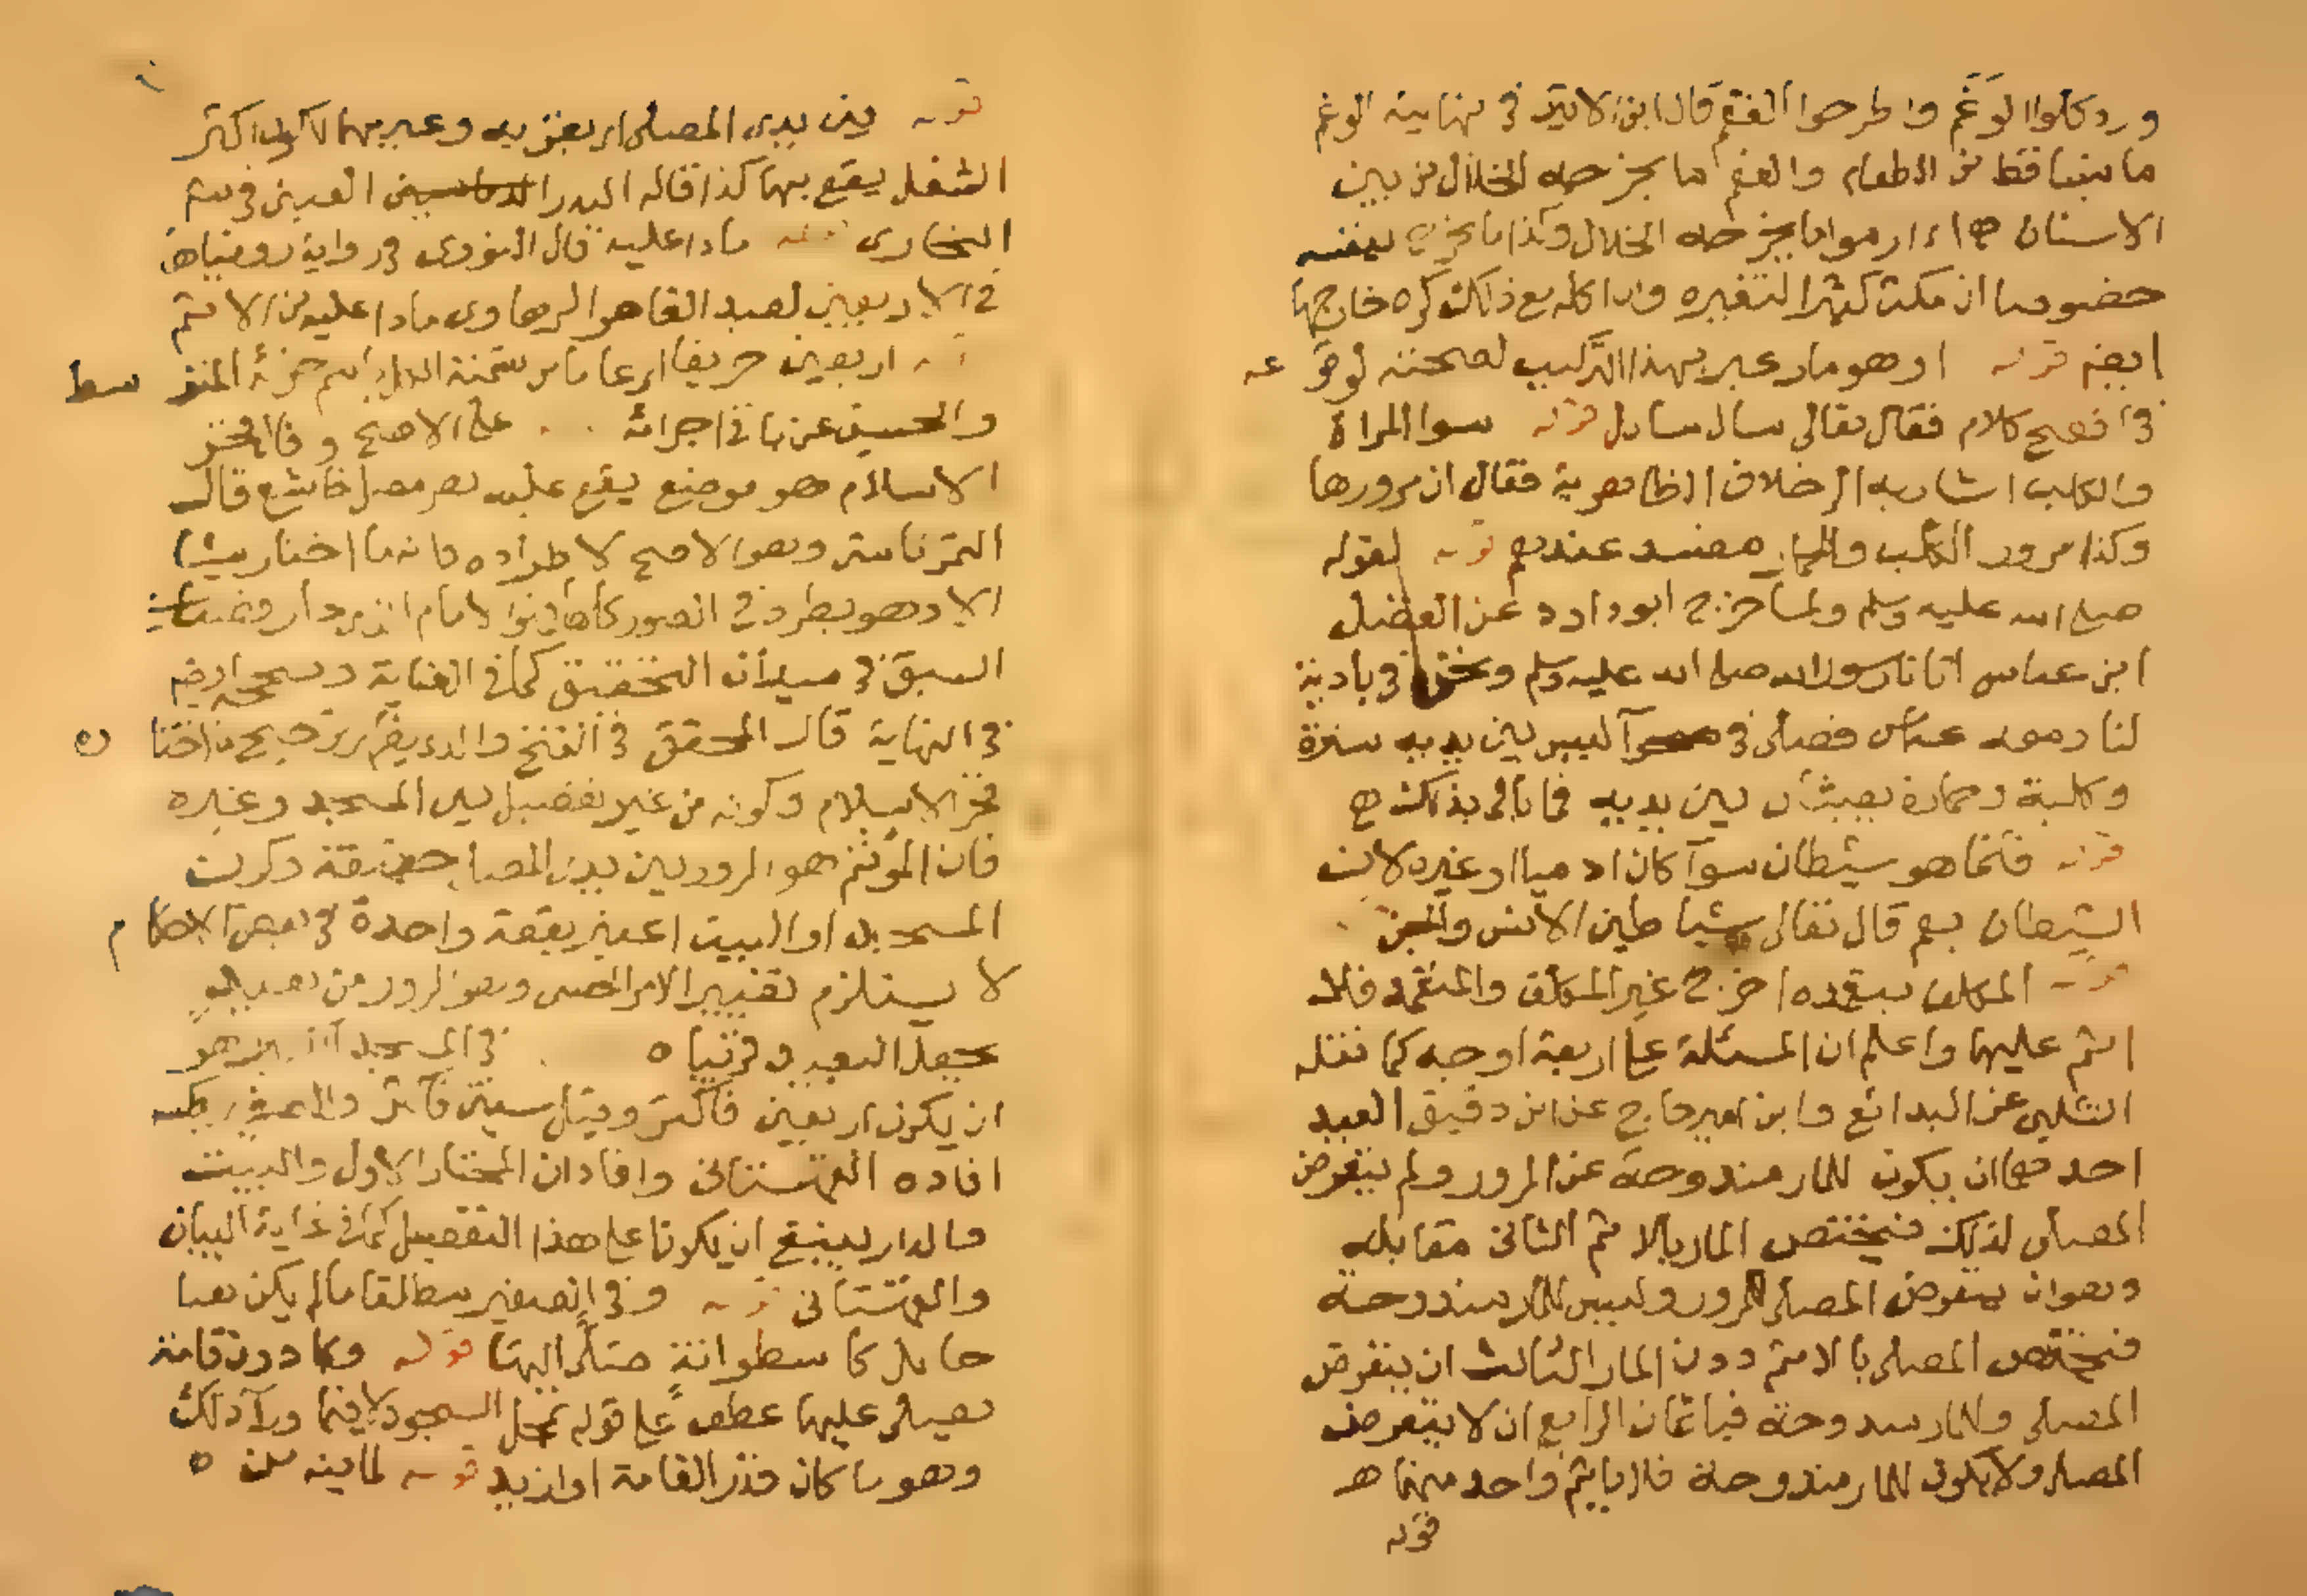 ورد كلوا الوَغْم واطرحوا الفغم قال ابن الاثير في نهايته الوغم
ما يتساقط من الطعام والفغم ما يخرجه الخلال من بين
الاسنان اه اى ارموا ما يخرجه الخلال وكذا ما يخرج بنفسه
خصوصا ان مكث كثيرا لتغيره واذا اكله مع ذلك كره خارجها
ايضا قوله او هو مار عبر بهذا التركيب لصحته لوقوعه
في افصح كلام فقال تعالى سال سايل قوله سوا المراة
والكلب اشار به الى خلاف الظاهرية فقال ان مرورها
وكذا مرور الكلب والحمار مفسد عندهم قوله لقوله
صلى الله عليه وسلم ولما اخرج ابو داود عن الفضل
ابن عباس اتانا رسول الله صلى الله عليه وسلم ونحن في بادية
لنا ومعه عباس فصلى في صحرآ ليس بين يديه سترة
وكلبة وحمارة يعبثان بين يديه فما بالى بذلك اه
قوله فانما هو شيطان سوآ كان ادميا او غيره لان
الشيطان يعم قال تعالى شياطين الانس والجن
قوله المكلف بتعمده اخرج غير المكلف والمتعمد فلا
اثم عليها واعلم ان المسئلة على اربعة اوجه كما نقله
الشلبى عن البدائع وابن امير حاج عن ابن دقيق العيد
احدهما ان يكون للمار مندوحة عن المرور ولم يتعرض
المصلى لذلك فيختص المار بالاثم الثانى مقابله
وهو ان يتعرض المصلى للمرور وليس للمار مندوحة
فيختص المصلى بالاثم دون المار الثالث ان يتعرض
المصلى وللمار مندوحة فياثمان الرابع ان لا يتعرض
المصلى ولا يكون للمار مندوحة فلا ياثم واحد منهما اهـ
قوله
قوله بين يدى المصلى اى بقربه وعبر بهما لكون اكثر
الشغل يقع بهما كذا قاله البدر العينى في شرح
البخارى قوله ماذا عليه قال النووى في رواية رويناها
في الاربعين لعبد القاهر الرهاوى ماذا عليه من الاثم
قوله اربعين خريفا اى عاما من تسمية الكل باسم جزئه المتوسط
على الاصح وفخر
الاسلام هو موضع يقع عليه بصر مصل خاشع قال
التمرتاشى وهو الاصح لاطراده فانه ما اختار شيئا
الا وهو يطرد في الصور كلها الامام الذى حاز قصبات
السبق في ميدان التحقيق كما في العناية وصححه ايضا
في النهاية قال المحقق في الفتح والذى يظهر ترجيح ما اختاره
فخر الاسلام وكونه من غير تفضيل بين المسجد وغيره
فان المؤثم هو المرور بين يدى المصلى حقيقة وكون
المسجد او البيت اعتبر بقعة واحدة في بعض الاحكام
لا يستلزم تغيير الامر الحسى وهو المرور من بعيد
بجعل البعيد قريبا اه في المسجد هو
ان يكون اربعين فاكثر وقيل ستين فاكثر والصغير بعكسه
افاده القهستانى وافاد ان المختار الاول والبيت
والدار ينبغى ان يكونا على هذا التفصيل كما في غاية البيان
والقهستانى قوله وفي الصغير مطلقا ما لم يكن هنا
حايل كاسطوانةٍ صلى اليها قوله وما دون قامة
يصلى عليها عطف على قوله محل السجود لا فيما وراء ذلك
وهو ما كان قدر القامة او ازيد قوله لما بينه من